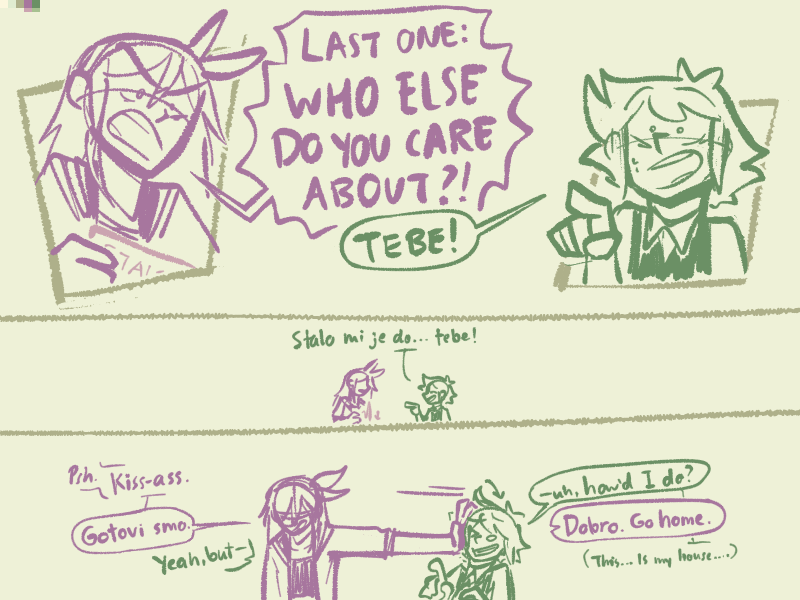 LAST ONE:
WHO ELSE
DO YOU CARE
ABOUT?!
TEBE!
STAL-
Stalo mi je do... tebe!
Psh.
Kiss-ass.
Gotovi smo.
Yeah, but-
-uh, how'd I do?
Dobro. Go home.
(This... Is my house....)